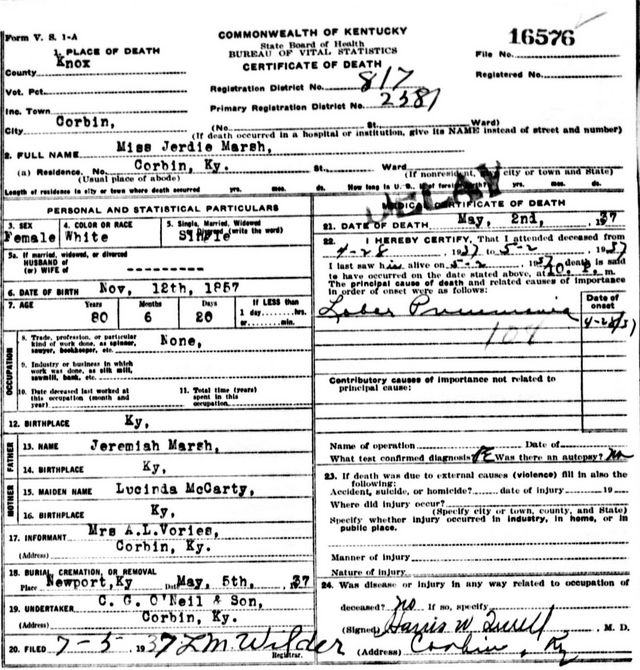 Form V. S. 1-A
COMMONWEALTH OF KENTUCKY
State Board of Health
BUREAU OF VITAL STATISTICS
CERTIFICATE OF DEATH
16576
File No.
Registered No.
1. PLACE OF DEATH
County Knox
Vot. Pct.
Inc. Town
City Corbin,
Registration District No. 817
Primary Registration District No. 2381
(No. St. Ward)
(If death occurred in a hospital or institution, give its NAME instead of street and number)
2. FULL NAME Miss Jerdie Marsh,
(a) Residence. No. Corbin, Ky. St. Ward
(Usual place of abode) (If nonresident, city or town and State)
Length of residence in city or town where death occurred yrs. mos. ds. How long in U. S., if of foreign birth? yrs. mos. ds.
DELAY
PERSONAL AND STATISTICAL PARTICULARS
3. SEX Female
4. COLOR OR RACE White
5. Single, Married, Widowed
or Divorced (write the word)
Single
5a. If married, widowed, or divorced
HUSBAND of
(or) WIFE of
6. DATE OF BIRTH Nov, 12th, 1857
7. AGE Years Months Days If LESS than
1 day hrs.
or min.
80 6 20
OCCUPATION
8. Trade, profession, or particular
kind of work done, as spinner,
sawyer, bookkeeper, etc. None,
9. Industry or business in which
work was done, as silk mill,
sawmill, bank, etc.
10. Date deceased last worked at
this occupation (month and
year)
11. Total time (years)
spent in this
occupation
12. BIRTHPLACE Ky,
FATHER
13. NAME Jeremiah Marsh,
14. BIRTHPLACE Ky,
MOTHER
15. MAIDEN NAME Lucinda McCarty,
16. BIRTHPLACE Ky,
17. INFORMANT Mrs A.L.Vories,
(Address) Corbin, Ky.
18. BURIAL, CREMATION, OR REMOVAL
Place Newport,Ky Date May, 5th, 37
19. UNDERTAKER C. G. O'Neil & Son,
(Address) Corbin, Ky.
20. FILED 7-5 1937 L M. Wilder
Registrar.
MEDICAL CERTIFICATE OF DEATH
21. DATE OF DEATH May, 2nd, 37
22. I HEREBY CERTIFY, That I attended deceased from
4-28, 1937 to 5-2, 1937
I last saw h alive on 5-2, 1937 death is said
to have occurred on the date stated above, at 10 m.
The principal cause of death and related causes of importance
in order of onset were as follows:
Date of
onset
Lobar Pneumonia 4-28/37
108
Contributory causes of importance not related to
principal cause:
Name of operation Date of
What test confirmed diagnosis? Was there an autopsy? no
23. If death was due to external causes (violence) fill in also the
following:
Accident, suicide, or homicide? date of injury 19
Where did injury occur?
(Specify city or town, county, and State)
Specify whether injury occurred in industry, in home, or in
public place.
Manner of injury
Nature of injury
24. Was disease or injury in any way related to occupation of
deceased? no If so, specify
(Signed) M. D.
(Address) Corbin, Ky